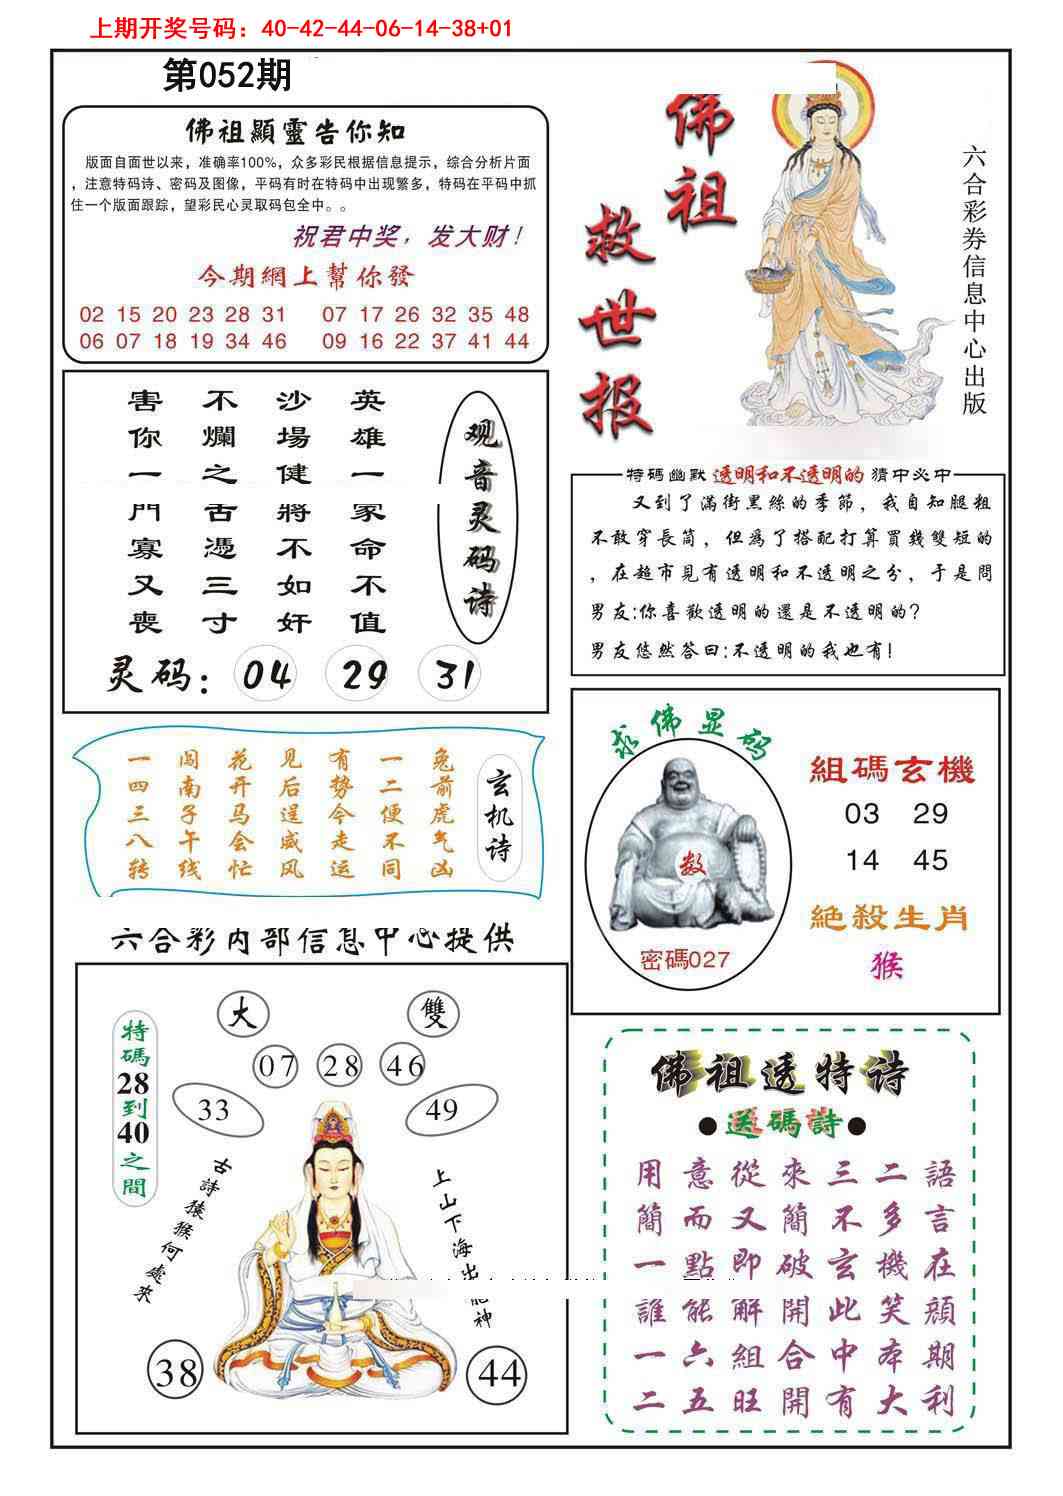 上期开奖号码：40-42-44-06-14-38+01
第052期
佛祖顯靈告你知
版面自面世以来，准确率100%，众多彩民根据信息提示，综合分析片面
，注意特码诗、密码及图像，平码有时在特码中出现繁多，特码在平码中抓
住一个版面跟踪，望彩民心灵取码包全中。。
祝君中奖，发大财！
今期網上幫你發
02 15 20 23 28 31 07 17 26 32 35 48
06 07 18 19 34 46 09 16 22 37 41 44
佛祖
救世报
六合彩券信息中心出版
观音灵码诗
英雄一冢命不值
沙場健將不如奸
不爛之舌憑三寸
害你一門寡又喪
灵码：04 29 31
特碼幽默 透明和不透明的 猜中必中
又到了滿街黑絲的季節，我自知腿粗
不敢穿長筒，但爲了搭配打算買幾雙短的
，在超市見有透明和不透明之分，于是問
男友:你喜歡透明的還是不透明的?
男友悠然答曰:不透明的我也有!
玄机诗
兔前虎气凶
一二便不同
有势今走运
见后逞威风
花开马会忙
闯南子午线
一四三八转
求佛显码
数
密碼027
組碼玄機
03 29
14 45
絕殺生肖
猴
六合彩内部信息中心提供
大 雙
07 28 46
33 49
特碼28到40之間
古詩猿猴何處來
上山下海出
神
38 44
佛祖透特诗
●送碼詩●
用意從來三二語
簡而又簡不多言
一點即破玄機在
誰能解開此笑顔
一六組合中本期
二五旺開有大利